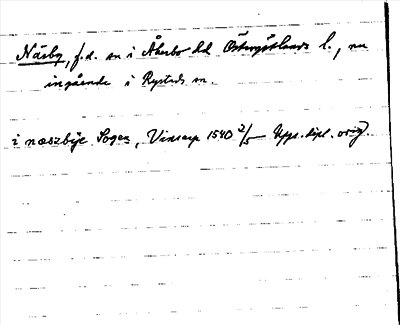 Näsby, f.d. sn i Åkerbo hd Östergötlands l., nu
ingående i Rystads sn.
i næszbije Sogen, Vinsarp 1540 2/5 Upps. dipl. orig.